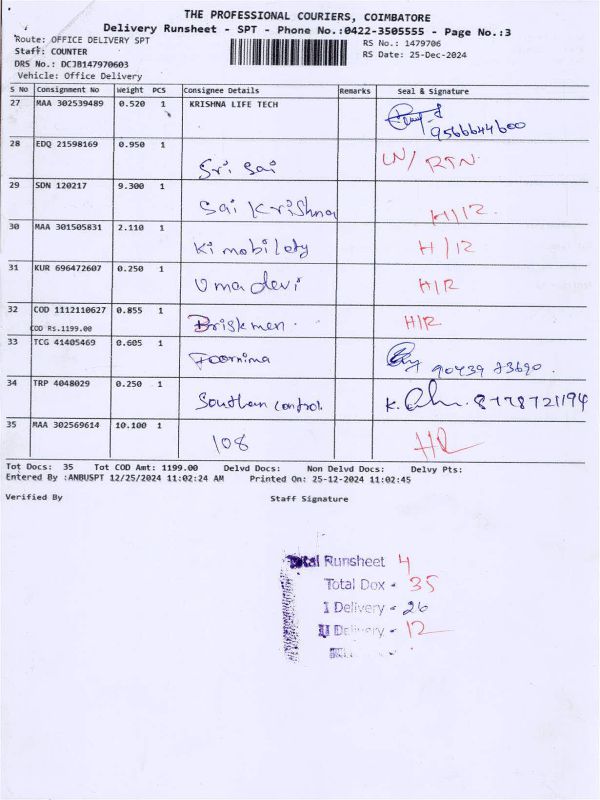 THE PROFESSIONAL COURIERS, COIMBATORE
Delivery Runsheet - SPT - Phone No.:0422-3505555 - Page No.:3
Route: OFFICE DELIVERY SPT RS No.: 1479706
Staff: COUNTER RS Date: 25-Dec-2024
DRS No.: DCJB147970603
Vehicle: Office Delivery
S No Consignment No Weight PCS Consignee Details Remarks Seal & Signature
27 MAA 302539489 0.520 1 KRISHNA LIFE TECH
9566644600
28 EDQ 21598169 0.950 1 Sri Sai RTN
29 SDN 120217 9.300 1 Sai Krishna H/R
30 MAA 301505831 2.110 1 Ki mobility H/R
31 KUR 696472607 0.250 1 Uma devi H/R
32 COD 1112110627 0.855 1 Briskmen. H/R
COD Rs.1199.00
33 TCG 41405469 0.605 1 Poornima 90439 73690.
34 TRP 4048029 0.250 1 Southern control. K. 8778721194
35 MAA 302569614 10.100 1 108 HR
Tot Docs: 35 Tot COD Amt: 1199.00 Delvd Docs: Non Delvd Docs: Delvy Pts:
Entered By :ANBUSPT 12/25/2024 11:02:24 AM Printed On: 25-12-2024 11:02:45
Verified By Staff Signature
Total Runsheet 4
Total Dox - 35
I Delivery - 26
II Delivery - 12